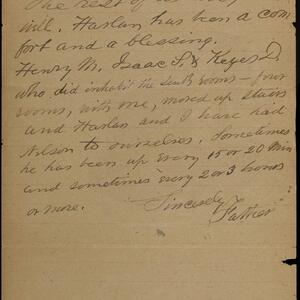 The rest of us
will. Harlan has been a com
fort and a blessing.
Henry M, Isaac S. & Keyes D.
who did inhabit the south rooms – four
rooms, with one, moved up stairs
and Harlan and I have had
Nelson to ourselves. Sometimes
he has been up every 15 or 20 min
and sometimes every 2 or 3 hours
or more.
Sincerely
Father